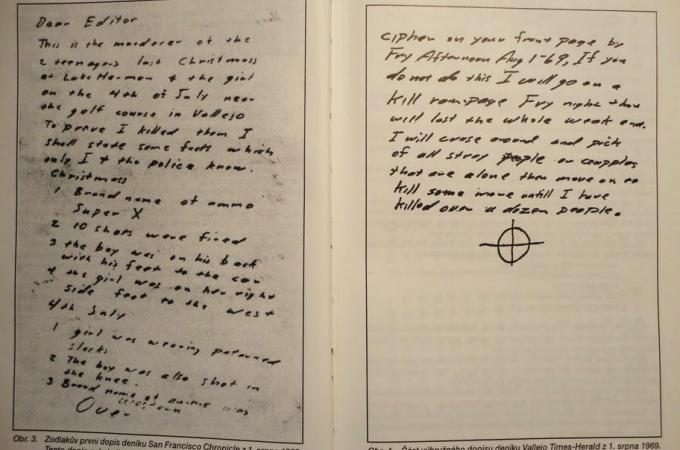 Dear Editor
This is the murderer of the
2 teenagers last Christmass
at Lake Herman & the girl
on the 4th of July near
the golf course in Vallejo
To prove I killed them I
shall state some facts which
only I + the police know.
Christmass
1 Brand name of ammo
Super X
2 10 shots were fired
3 the boy was on his back
with his feet to the car
4 the girl was on her right
side feet to the west
4th July
1 girl was wearing paterned
slacks
2 The boy was also shot in
the knee.
3 Brand name of ammo was
Western
Over
Obr. 3. Zodiakův první dopis deníku San Francisco Chronicle z 1. srpna
cipher on your front page by
Fry Afternoon Aug 1-69, If you
do not do this I will go on a
kill rampage Fry night that
will last the whole week end.
I will cruse around and pick
of all stray people or coupples
that are alone then move on to
kill some more untill I have
killed over a dozen people.
dopisu deníku Vallejo Times-Herald z 1. srpna 1969.